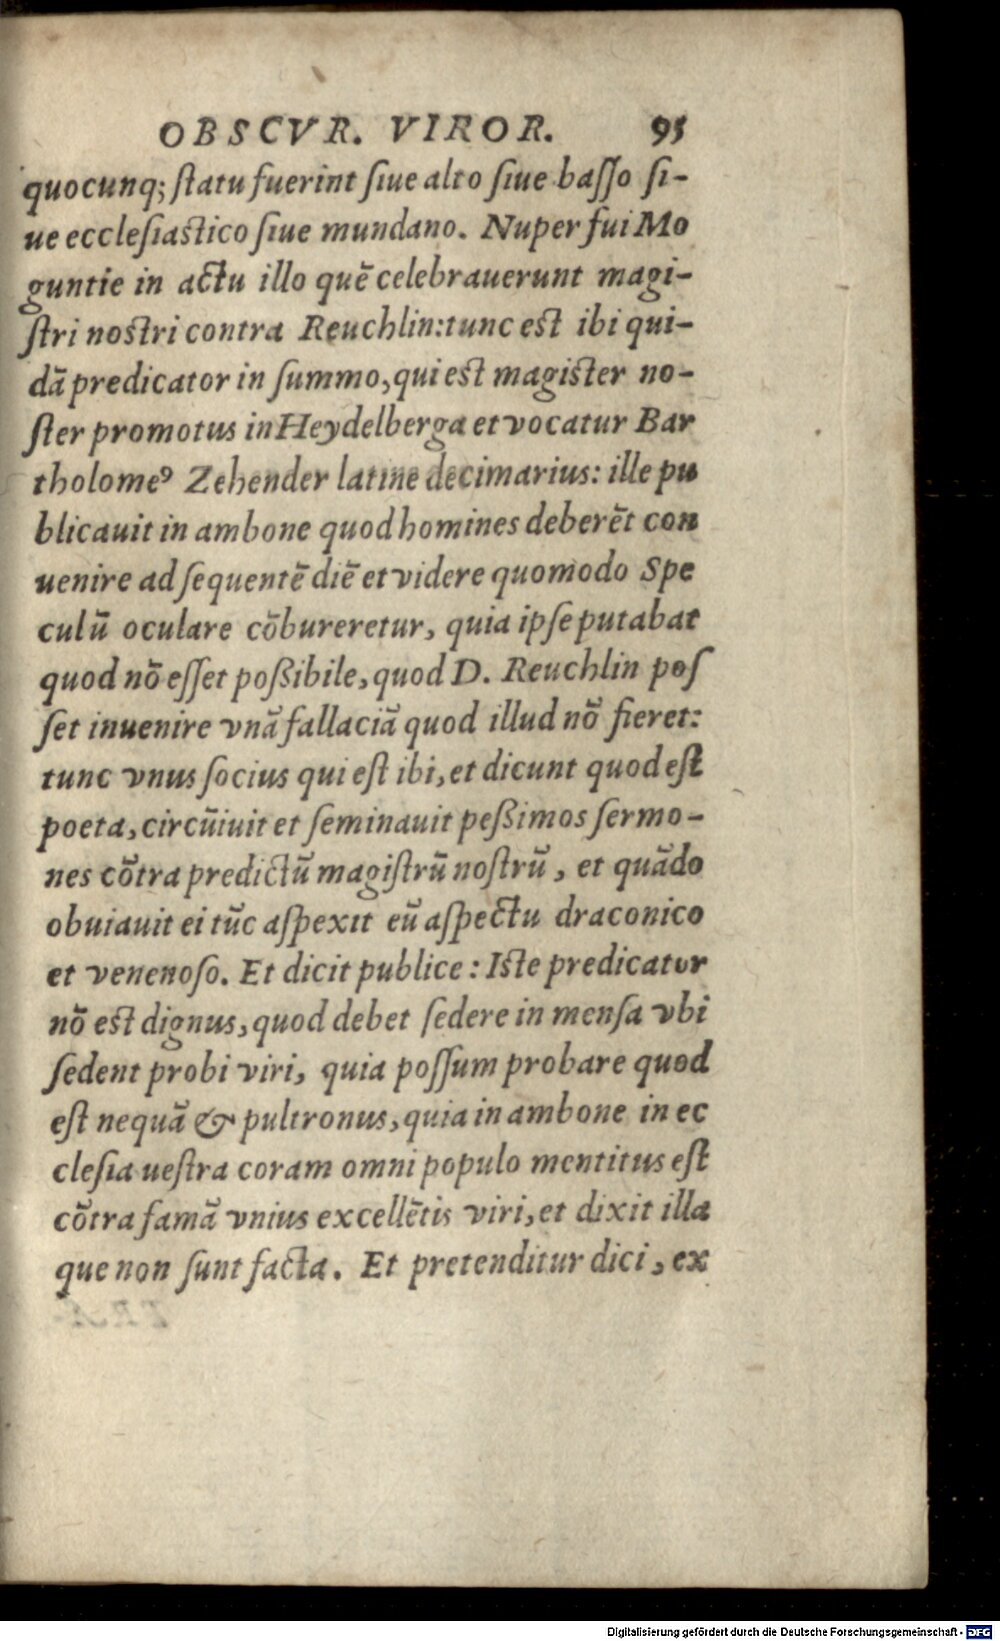 OBSCVR. VIROR. 95
quocunq; ſtatu fuerint ſiue alto ſiue baſſo ſi-
ue eccleſiaſtico ſiue mundano. Nuper fui Mo
guntie in actu illo quē celebrauerunt magi-
ſtri noſtri contra Reuchlin: tunc eſt ibi qui-
dā predicator in ſummo, qui eſt magiſter no-
ſter promotus in Heydelberga et vocatur Bar
tholomeꝰ Zehender latine decimarius: ille pu
blicauit in ambone quod homines deberēt con
uenire ad ſequentē diē et videre quomodo Spe
culū oculare cōbureretur, quia ipſe putabat
quod nō eſſet poßibile, quod D. Reuchlin poſ
ſet inuenire vnā fallaciā quod illud nō fieret:
tunc vnus ſocius qui eſt ibi, et dicunt quod eſt
poeta, circūiuit et ſeminauit peßimos ſermo-
nes cōtra predictū magiſtrū noſtrū, et quādo
obuiauit ei tūc aſpexit eū aſpectu draconico
et venenoſo. Et dicit publice: Iſte predicator
nō eſt dignus, quod debet ſedere in menſa vbi
ſedent probi viri, quia poſſum probare quod
eſt nequā & pultronus, quia in ambone in ec
cleſia ueſtra coram omni populo mentitus eſt
cōtra famā vnius excellētis viri, et dixit illa
que non ſunt facta. Et pretenditur dici, ex
Digitalisierung gefördert durch die Deutsche Forschungsgemeinschaft - DFG